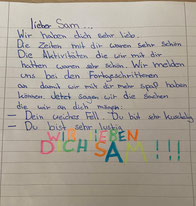 lieber Sam ...
Wir haben dich sehr lieb.
Die Zeiten mit dir waren sehr schön
Die Aktivitäten die wir mit dir
hatten waren sehr schön. Wir melden
uns bei den Fortgeschrittenen
an damit wir mit dir mehr spaß haben
können. Jetzt sagen wir die sachen
die wir an dich mögen:
- Dein weiches Fell. Du bist sehr kuschelig
- Du bist sehr lustig
WIR LIEBEN
DICH SAM!!!